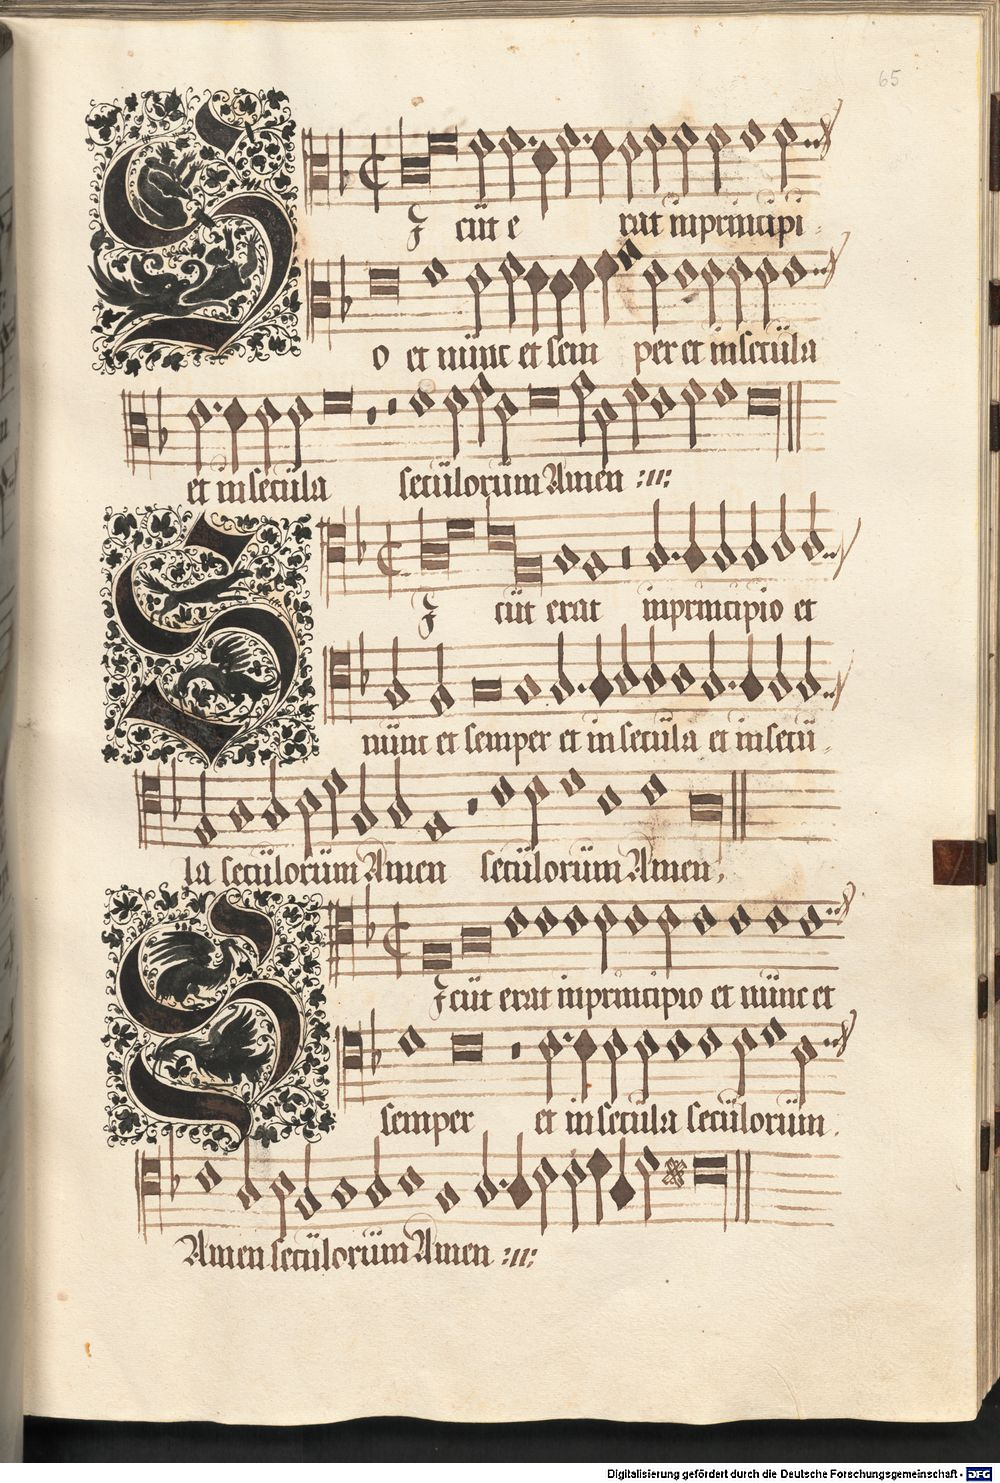 65
SJ cüt e rat inprincipi
o et nünc et sem per et insecüla
et in secüla secülorüm Amen
SJ cüt erat inprincipio et
nünc et semper et in secüla et insecü
la secülorüm Amen secülorüm Amen,
SJcüt erat inprincipio et nünc et
semper et in secüla secülorüm
Amen secülorüm Amen
Digitalisierung gefördert durch die Deutsche Forschungsgemeinschaft - DFG